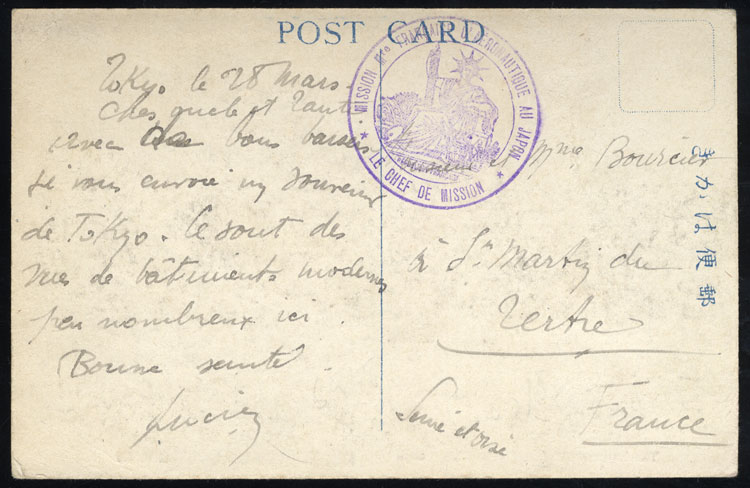 POST CARD
Tokyo le 28 Mars.
Chers oncle et tante
avec bons baisers
je vous envoie un souvenir
de Tokyo. Ce sont des
vues de bâtiments modernes
peu nombreux ici.
Bonne santé.
Lucien
MISSION Mre FRANÇAISE D'AERONAUTIQUE AU JAPON
★ LE CHEF DE MISSION ★
Monsieur et Mme Bourcier
à St Martin du
Tertre
Seine et oise
France
きかは便郵